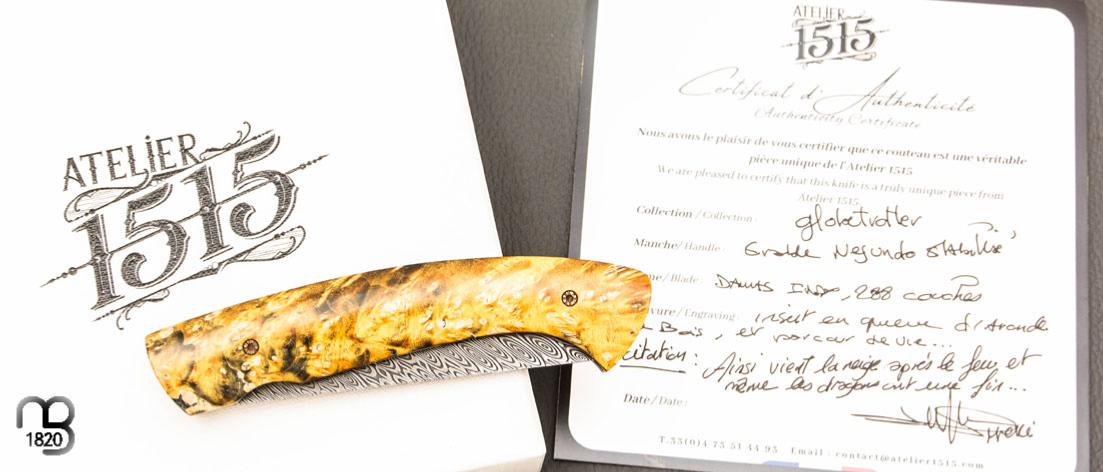 ATELIER
1515
ATELIER
1515
Certificat d'Authenticité
(Authenticity Certificate
Nous avons le plaisir de vous certifier que ce couteau est une véritable
pièce unique de l'Atelier 1515
We are pleased to certify that this knife is a truly unique piece from
Atelier 1515.
Collection / Collection : globetrotter
Manche/ Handle : Erable Negundo stabilisé,
/ Blade : DAMAS INOX, 288 couches
/ Engraving : insert en queue d'Aronde
Bois, et parcour de vie...
citation : Ainsi vient la neige après le feu et
même les dragons ont une fin...
Date / Date :
T.33(0)4 73 51 44 93 Email : contact@atelier1515.com
MB
1820